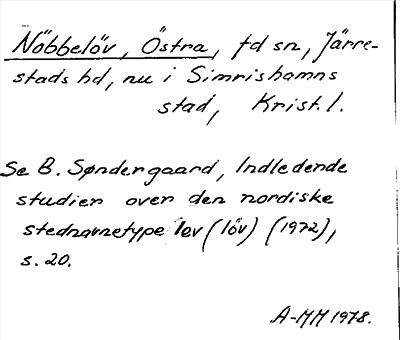 Nöbbelöv, Östra, fd sn, Järre-
stads hd, nu i Simrishamns
stad, Krist. l.
Se B. Søndergaard, Indledende
studier over den nordiske
stednavnetype lev (löv) (1972),
s. 20.
A-MM 1978.